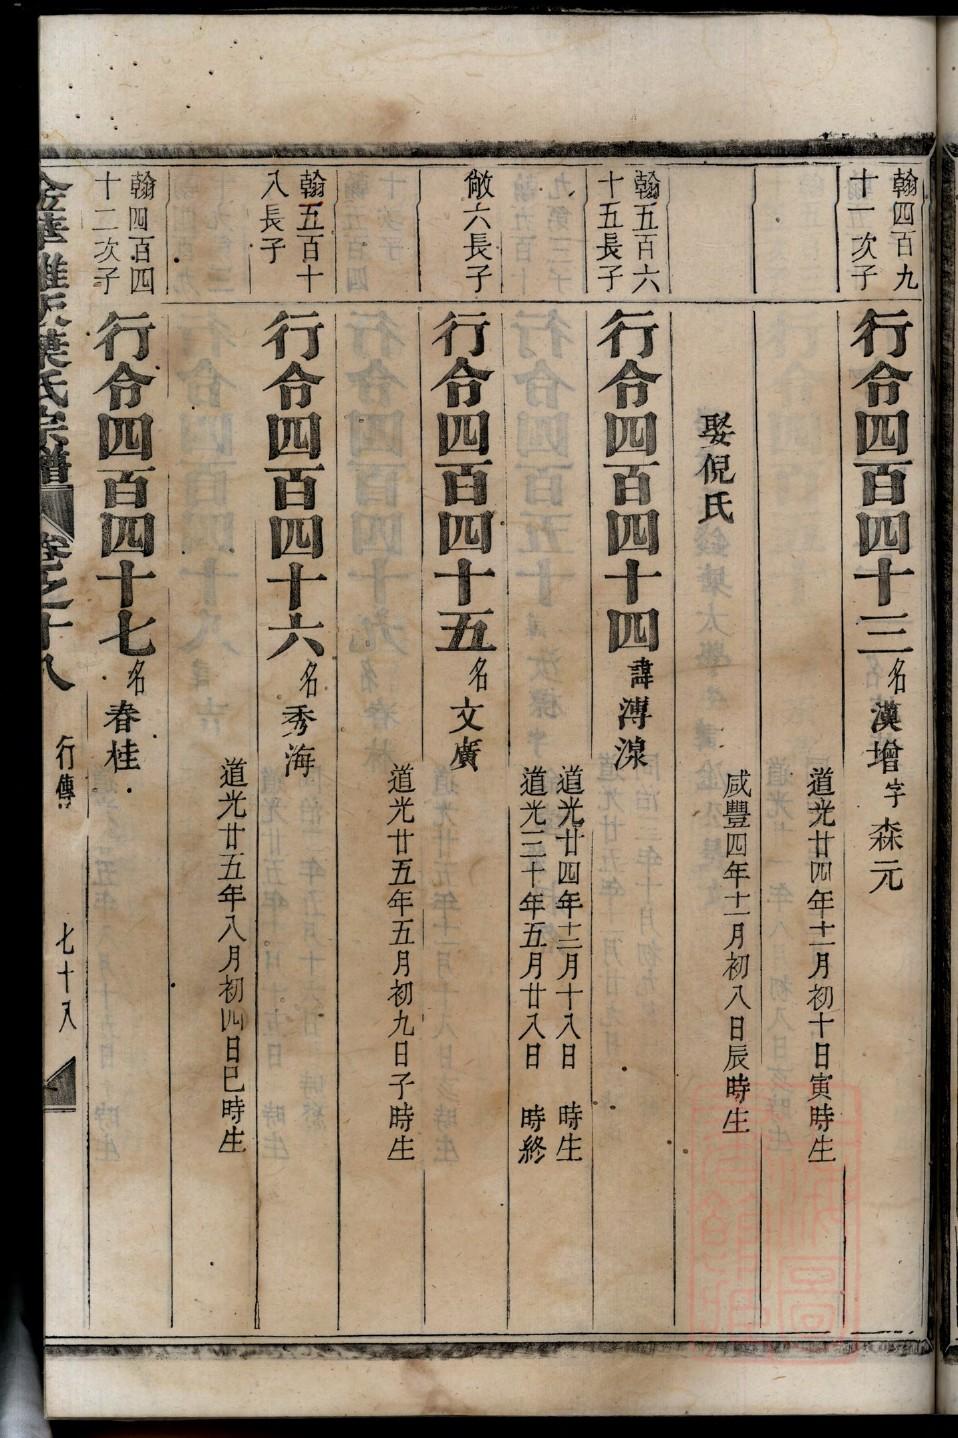 翰四百九
十一次子
行令四百四十三 名漢增 字森元
道光廿四年十二月初十日寅時生
娶倪氏
咸豐四年十一月初八日辰時生
翰五百六
十五長子
行令四百四十四 諱漙澋
道光廿四年十二月十八日 時生
道光三十年五月廿八日 時終
敞六長子
行令四百四十五 名文廣
道光廿五年五月初九日子時生
翰五百十
八長子
行令四百四十六 名秀海
道光廿五年八月初四日巳時生
翰四百四
十二次子
行令四百四十七 名春桂
氏宗譜 卷之十八 行傳 七十八